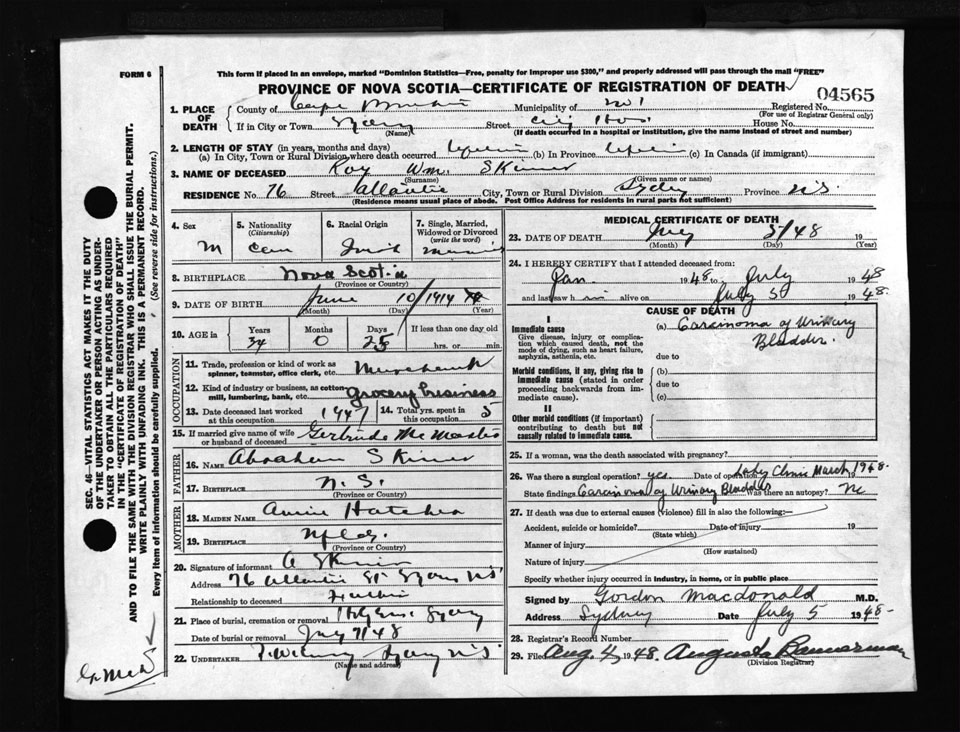 FORM 6
This form if placed in an envelope, marked "Dominion Statistics—Free, penalty for improper use $300," and properly addressed will pass through the mail "FREE"
PROVINCE OF NOVA SCOTIA—CERTIFICATE OF REGISTRATION OF DEATH
04565
1. PLACE OF DEATH
County of Cape Municipality of No 1 Registered No.
(For use of Registrar General only)
If in City or Town Sydney Street City Hos. House No.
(Name) (If death occurred in a hospital or institution, give the name instead of street and number)
2. LENGTH OF STAY (in years, months and days)
(a) In City, Town or Rural Division where death occurred (b) In Province (c) In Canada (if immigrant)
3. NAME OF DECEASED Roy Wm. Skinner
(Surname) (Given name or names)
RESIDENCE No. 76 Street Atlantic City, Town or Rural Division Sydney Province N.S.
(Residence means usual place of abode. Post Office Address for residents in rural parts not sufficient)
4. Sex M
5. Nationality (Citizenship) Can
6. Racial Origin
7. Single, Married, Widowed or Divorced (write the word)
8. BIRTHPLACE Nova Scotia
(Province or Country)
9. DATE OF BIRTH June 10/1914
(Month) (Day) (Year)
10. AGE in Years Months Days If less than one day old
34 0 25 hrs. or min.
OCCUPATION
11. Trade, profession or kind of work as spinner, teamster, office clerk, etc.
12. Kind of industry or business, as cotton-mill, lumbering, bank, etc. Grocery business
13. Date deceased last worked at this occupation 1947 14. Total yrs. spent in this occupation
15. If married give name of wife or husband of deceased Gertrude McMaster
FATHER
16. NAME Abraham Skinner
17. BIRTHPLACE N.S.
(Province or Country)
MOTHER
18. MAIDEN NAME Annie
19. BIRTHPLACE Nfld.
(Province or Country)
20. Signature of informant A Skinner
Address 76 Atlantic St Sydney NS
Relationship to deceased Father
21. Place of burial, cremation or removal Sydney
Date of burial or removal July 7/48
22. UNDERTAKER Sydney NS
(Name and address)
MEDICAL CERTIFICATE OF DEATH
23. DATE OF DEATH July 5/48 19
(Month) (Day) (Year)
24. I HEREBY CERTIFY that I attended deceased from:
Jan. 1948 to July 1948
and last saw him alive on July 5 1948.
CAUSE OF DEATH
I
Immediate cause (a) Carcinoma of Urinary Bladder.
Give disease, injury or complication which caused death, not the mode of dying, such as heart failure, asphyxia, asthenia, etc.
due to
Morbid conditions, if any, giving rise to immediate cause (stated in order proceeding backwards from immediate cause). (b)
due to
(c)
II
Other morbid conditions (if important) contributing to death but not causally related to immediate cause.
25. If a woman, was the death associated with pregnancy?
26. Was there a surgical operation? yes. Date of operation Lahey Clinic March, 1948.
State findings Carcinoma of Urinary Bladder Was there an autopsy? No
27. If death was due to external causes (violence) fill in also the following:—
Accident, suicide or homicide? Date of injury 19
(State which)
Manner of injury
(How sustained)
Nature of injury
Specify whether injury occurred in industry, in home, or in public place
Signed by Gordon Macdonald M.D.
Address Sydney Date July 5 1948.
28. Registrar's Record Number
29. Filed Aug. 4, 1948. Augusta Bannerman
(Division Registrar)
SEC. 46—VITAL STATISTICS ACT MAKES IT THE DUTY
OF THE UNDERTAKER OR PERSON ACTING AS UNDER-
TAKER TO OBTAIN ALL THE PARTICULARS REQUIRED
IN THE "CERTIFICATE OF REGISTRATION OF DEATH"
AND TO FILE THE SAME WITH THE DIVISION REGISTRAR WHO SHALL ISSUE THE BURIAL PERMIT.
WRITE PLAINLY WITH UNFADING INK. THIS IS A PERMANENT RECORD.
Every item of Information should be carefully supplied. (See reverse side for instructions.)